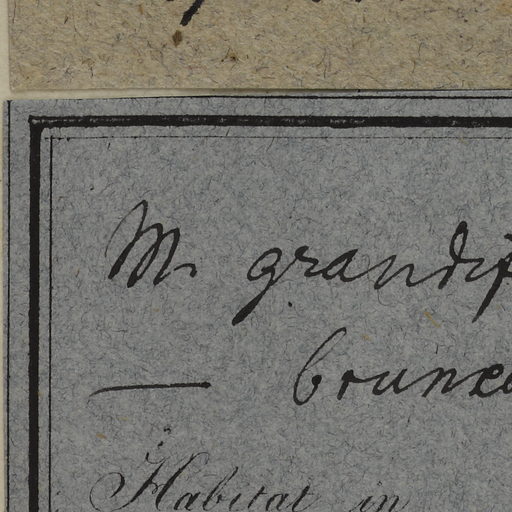 M. grandif
— bruneo
Habitat in